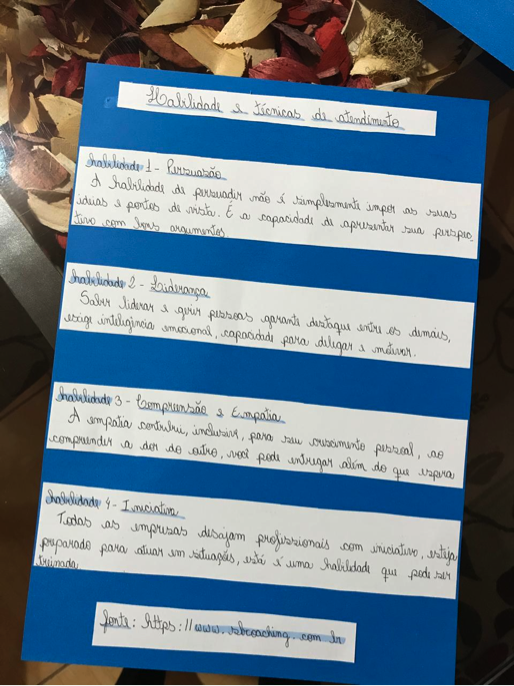 Habilidade e técnicas de atendimento
habilidade 1 - Persuasão
A habilidade de persuadir não é simplesmente impor as suas
ideias e pontos de vista. É a capacidade de apresentar sua perspec
tiva com bons argumentos.
habilidade 2 - Liderança
Saber liderar e gerir pessoas garante destaque entre os demais,
exige inteligência emocional, capacidade para dilegar e motivar.
habilidade 3 - Compreensão e Empatia
A empatia contribui, inclusive, para seu crescimento pessoal, ao
compreender a dor do outro, você pode entregar além do que espera
habilidade 4 - Iniciativa
Todas as empresas desejam profissionais com iniciativa, esteja
preparado para atuar em situações, está é uma habilidade que pode ser
treinada
fonte: https://www.sbcoaching.com.br